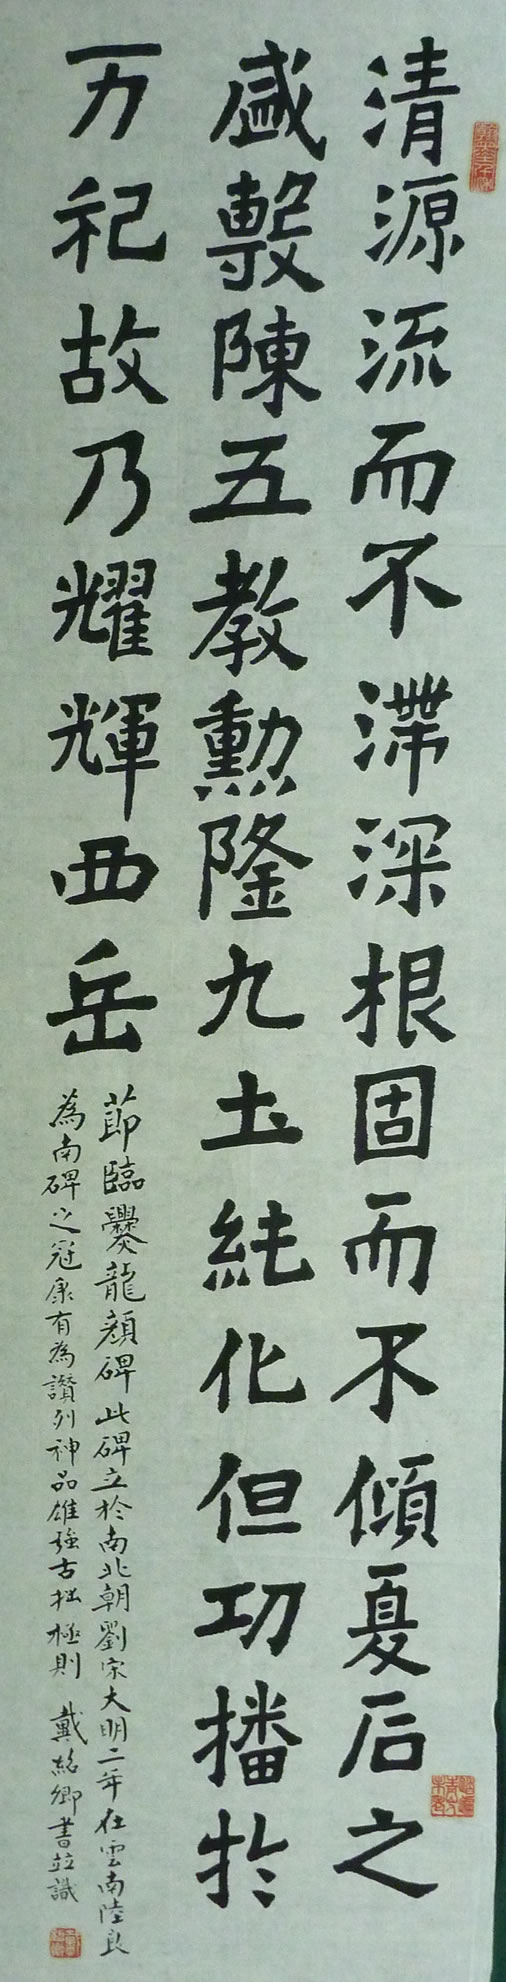 清源流而不滯深根固而不傾夏后之
盛敷陳五教勳隆九土純化但功播於
万祀故乃耀輝西岳
節臨爨龍顏碑此碑立於南北朝劉宋大明二年在雲南陸良
為南碑之冠康有為讚列神品雄強古拙極則 戴紹卿書並識